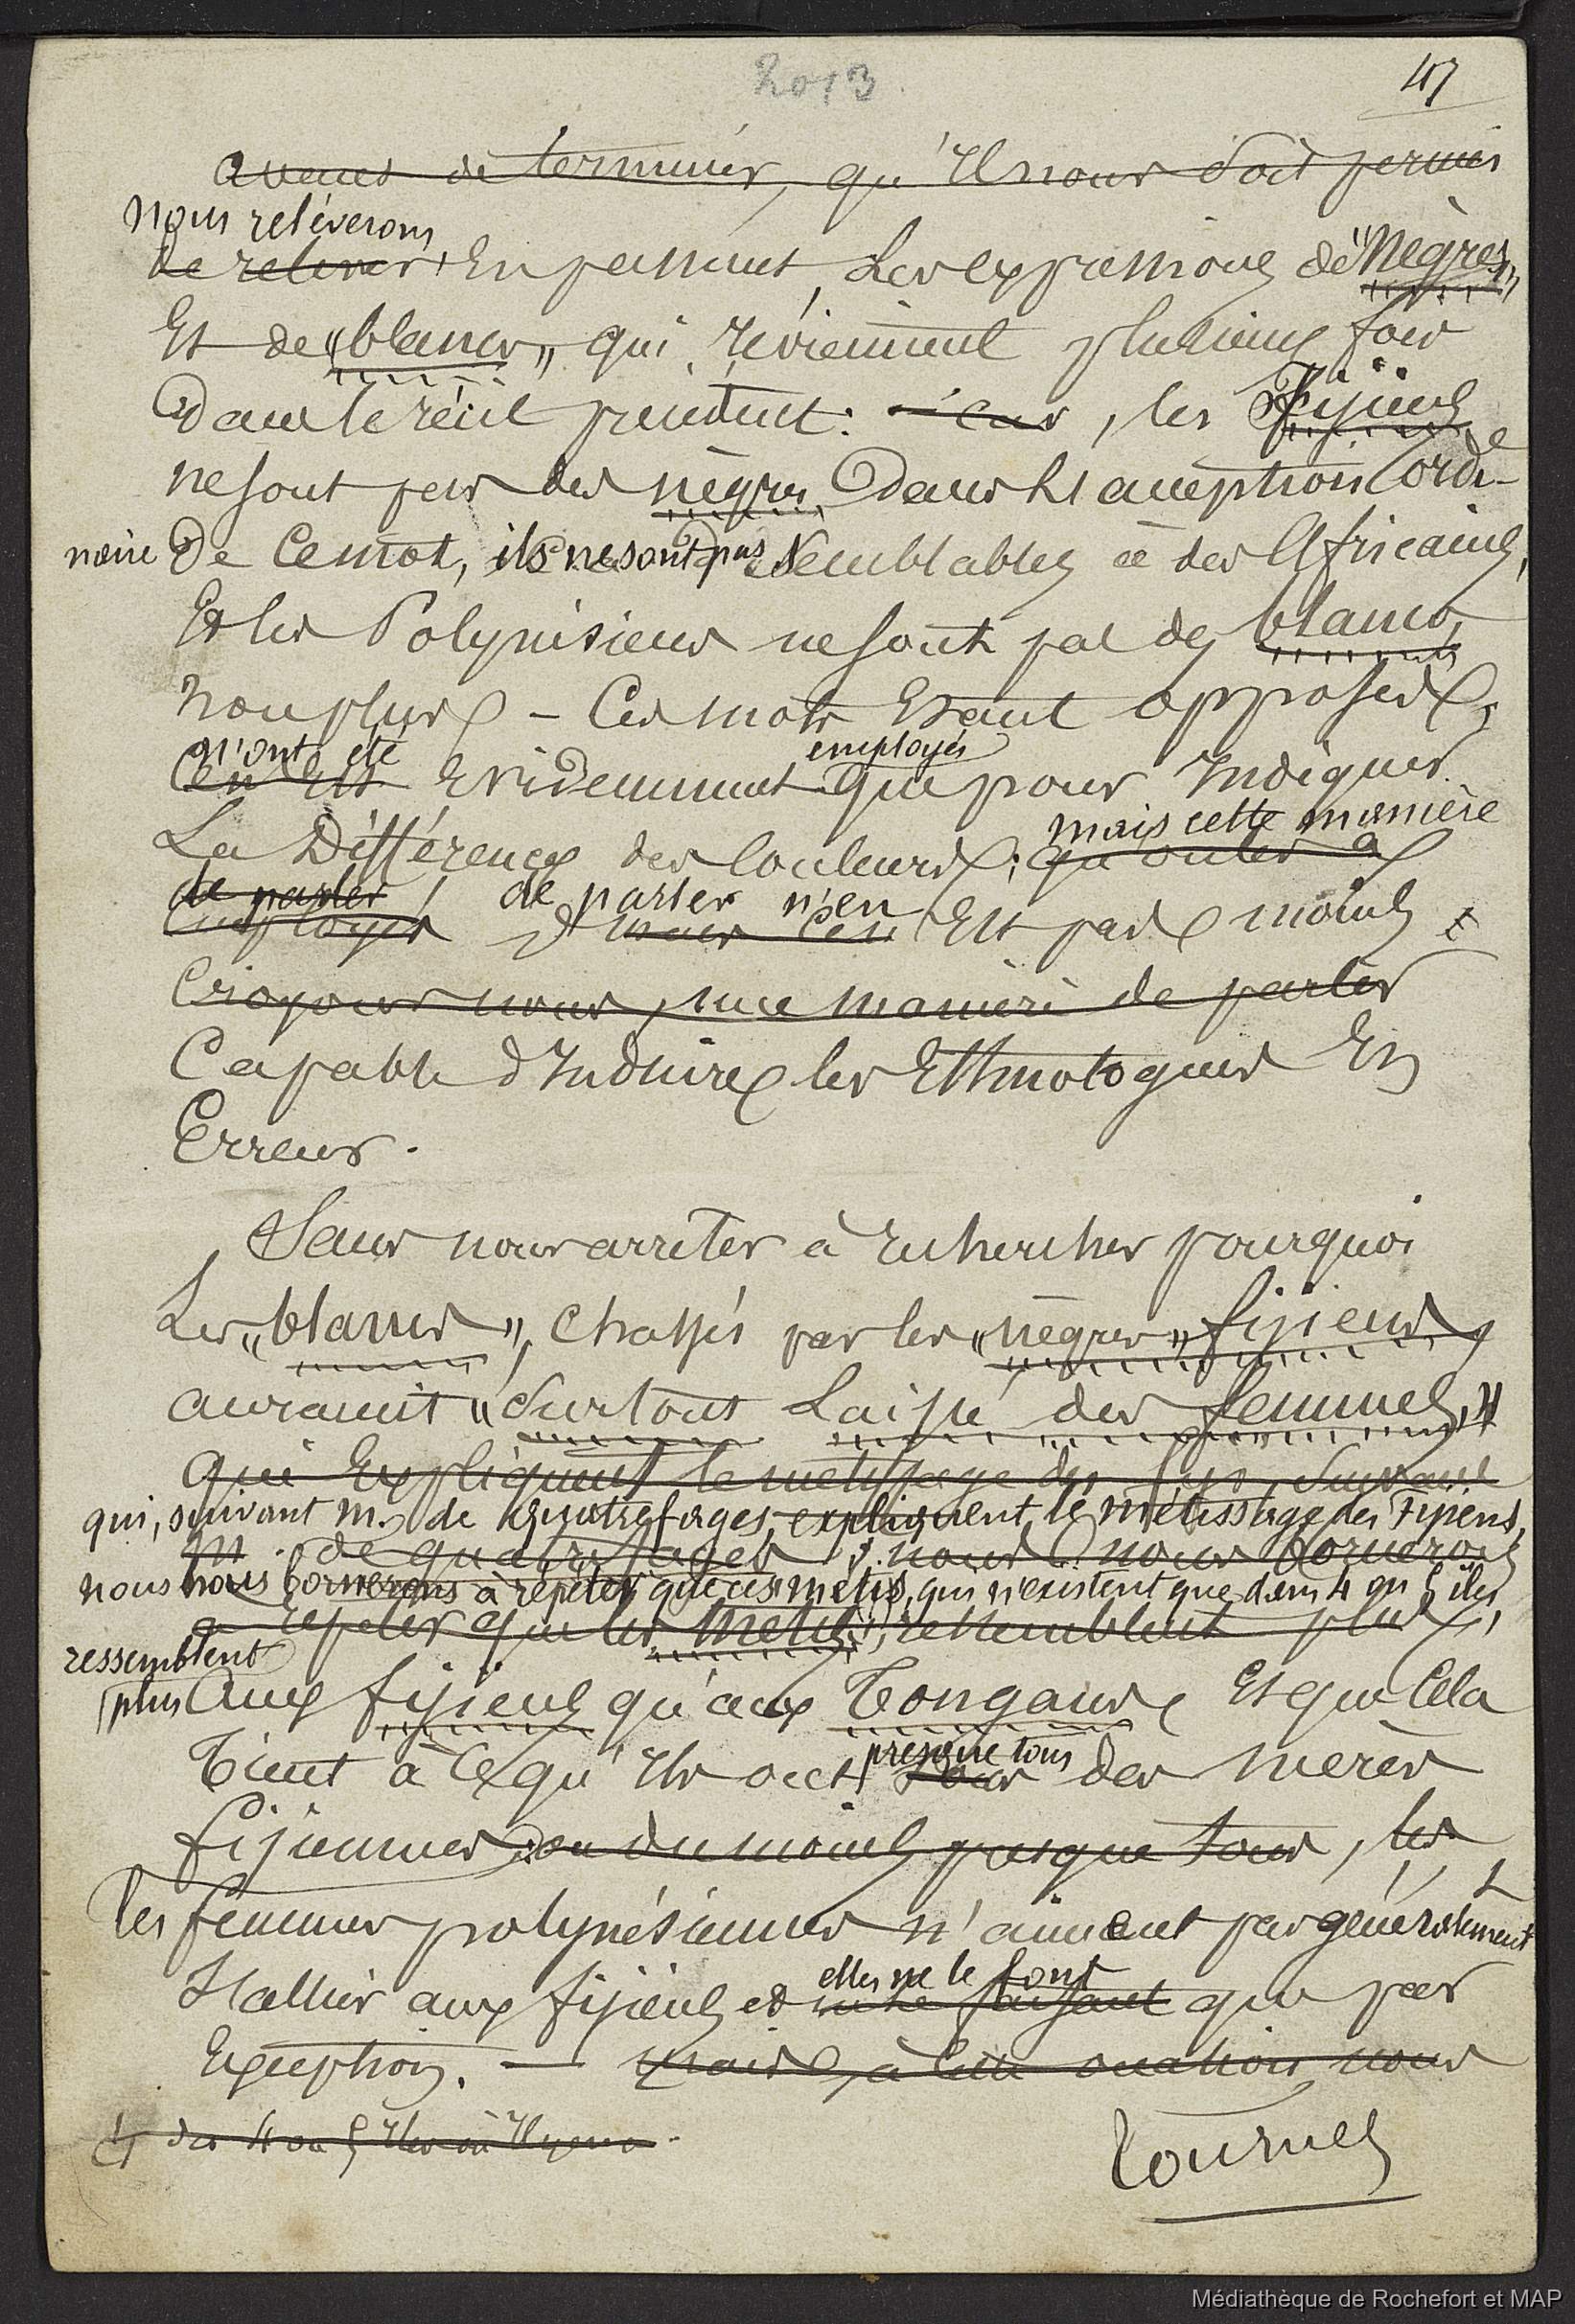 2013
47
avant de terminer, qu'il nous soit permis
nous relèverons
de relever, en passant, les expressions de "nègres"
et de "blancs" qui reviennent plusieurs fois
dans le récit précédent: car, les Fijiens
ne sont pas des nègres dans l'acception ordi-
naire de ce mot, ils ne sont pas semblables à des Africains,
et les Polynésiens ne sont pas des blancs
non plus - Ces mots étant opposés,
n'ont été employés
ce n'est évidemment que pour indiquer
mais cette manière
la différence des couleurs; qu'on les a
de parler de parler n'en
employés mais c'en est pas moins
croyons nous, une manière de parler
capable d'induire les Ethnologues en
Erreur.
Sans nous arrêter à rechercher pourquoi
les "blancs", chassés par les "nègres" fijiens
auraient "surtout laissé des femmes,"
qui expliquent le métissage des fijiens, suivant
qui, suivant m. de Quatrefages, expliquent le métissage des Fijiens,
M. de quatrefages; nous nous bornerons
nous nous bornerons à répéter que ces métis, qui n'existent que dans 4 ou 5 iles,
à répéter que les métis, ressemblent plus
ressemblent
plus aux fijiens qu'aux Tongans et que cela
presque tous
tient à ce qu'ils ont tous des mères
fijiennes ou du moins presque tous, les
les femmes polynésiennes n'aimant pas généralement
elles ne le font
s'allier aux fijiens et ne le faisant que par
exception. — mais, à cette occasion, nous
des 4 ou 5 iles où il y en a.
Tournez
Médiathèque de Rochefort et MAP